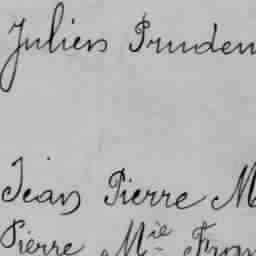 Julien Pruden
Jean Pierre M
Pierre Mie From